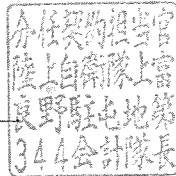 分任契約担当官
陸上自衛隊上富
良野駐屯地第
344会計隊長